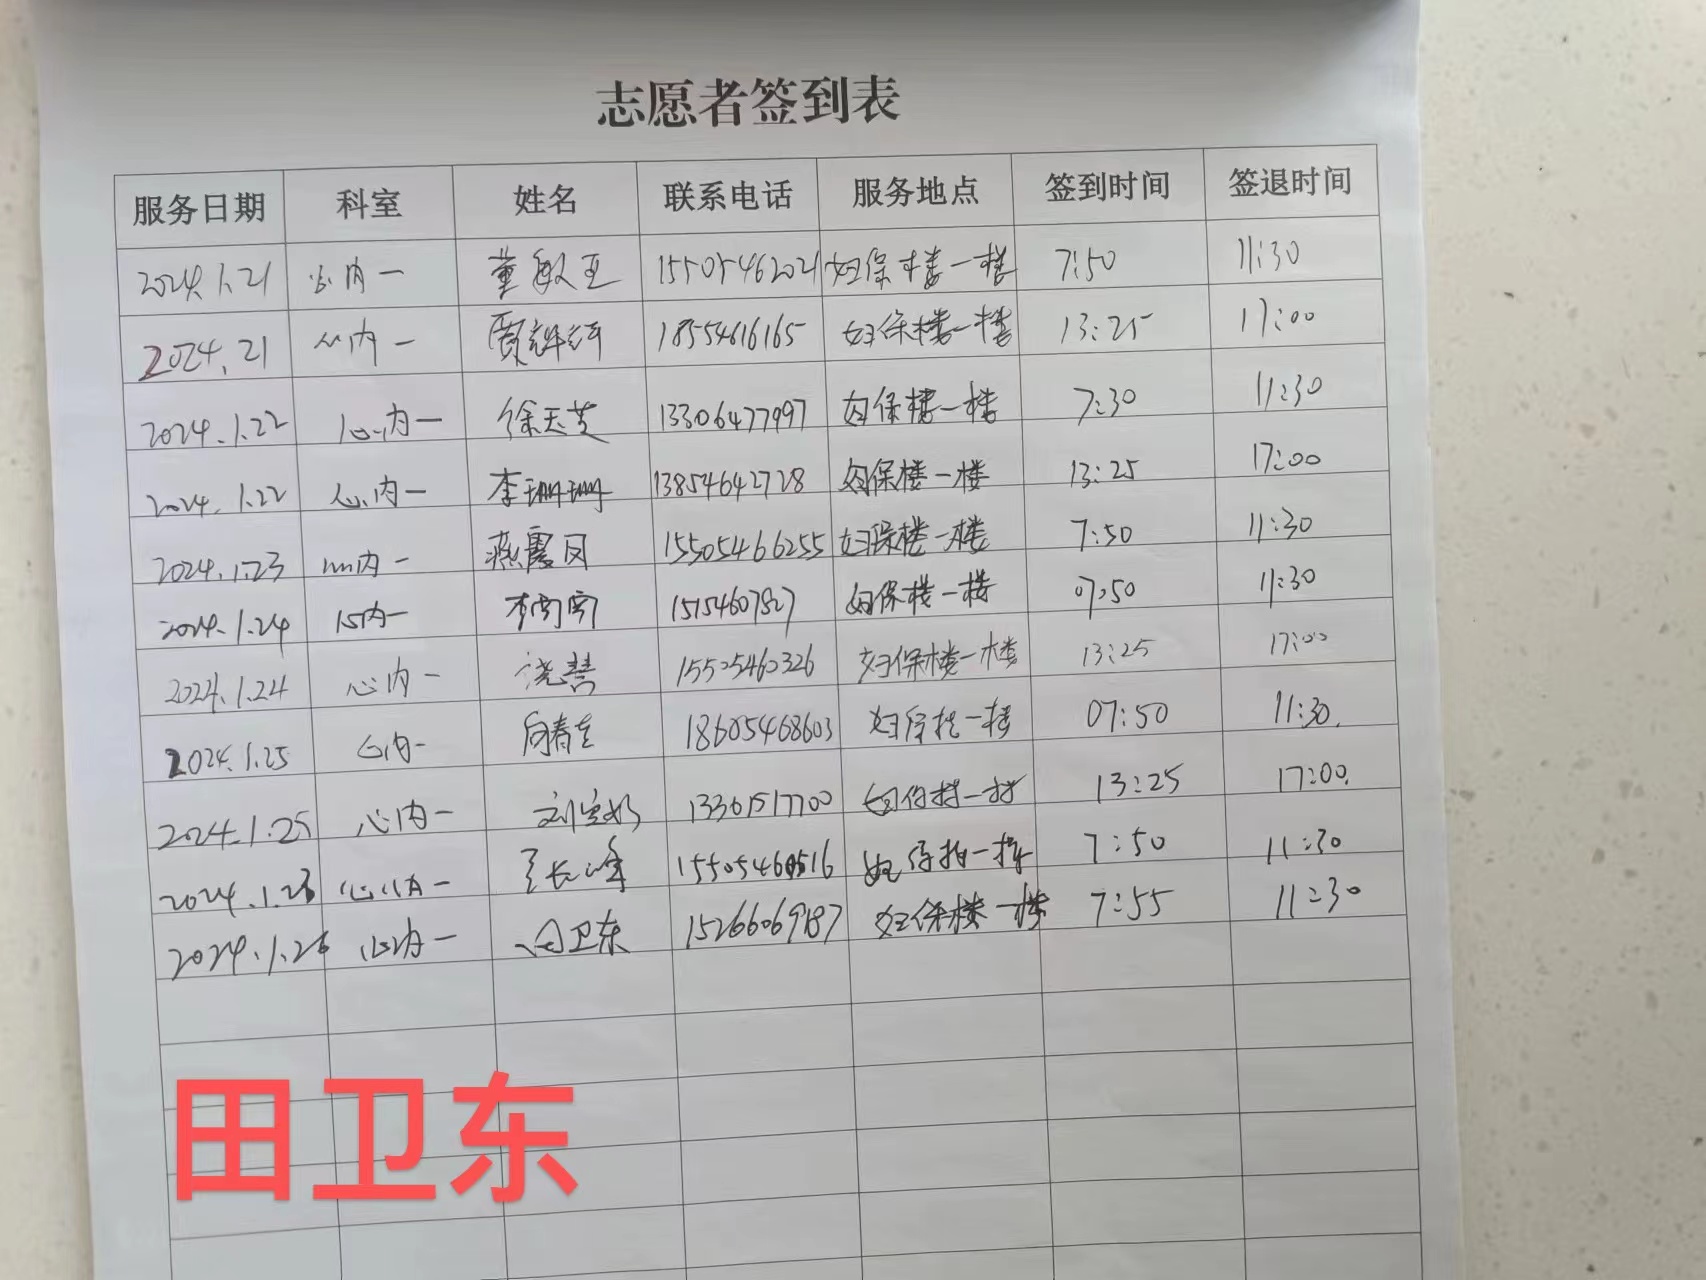 志愿者签到表
服务日期 科室 姓名 联系电话 服务地点 签到时间 签退时间
2024.1.21 心内一 董敏 15505462021 妇保楼一楼 7:50 11:30
2024.21 心内一 贾 18554616165 妇保楼一楼 13:25 17:00
2024.1.22 心内一 徐玉芝 13306477997 妇保楼一楼 7:30 11:30
2024.1.22 心内一 李珊珊 13854642728 妇保楼一楼 13:25 17:00
2024.1.23 心内一 燕霞 15505466255 妇保楼一楼 7:50 11:30
2024.1.24 心内一 李 15154607827 妇保楼一楼 07:50 11:30
2024.1.24 心内一 慧 15505460326 妇保楼一楼 13:25 17:00
2024.1.25 心内一 18605468603 妇保楼一楼 07:50 11:30.
2024.1.25 心内一 刘 13361517700 妇保楼一楼 13:25 17:00.
2024.1.23 心内一 长峰 妇保楼一楼 7:50 11:30
2024.1.26 心内一 田卫东 15266069187 妇保楼一楼 7:55 11:30
田卫东